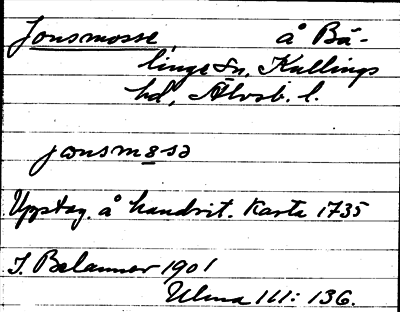 Jonsmosse å Bä-
linge sn, Kullings
hd, Älvsb. l.
jonsmosə
Uppstag. å handrit. karta 1735
J. Belanner 1901
Ulma 111: 136.